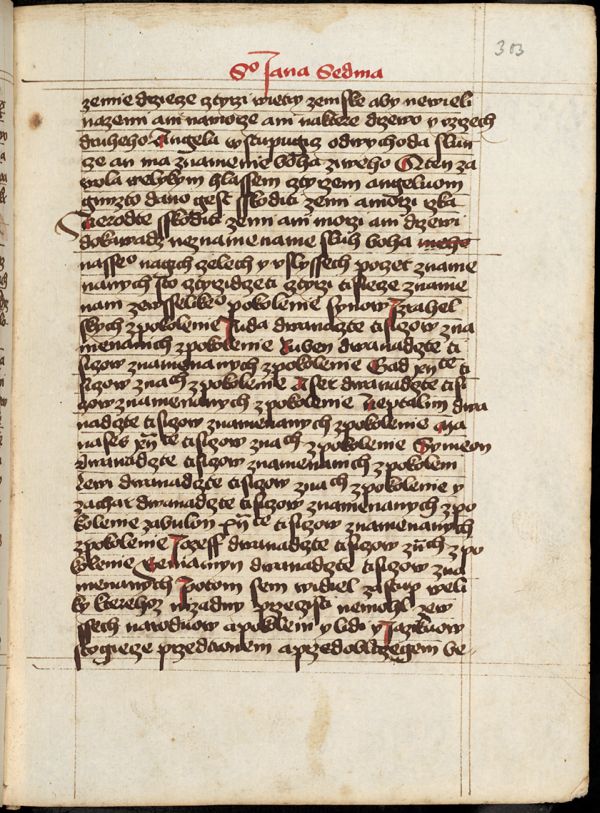 303
So Jana Sedma
zemie drzieze cztyrzi wietry zemske aby newieli
nazemi ani namorze ani naktere drzewo y vzrzech
druheho Angela wstupugicz odwychoda slun
cze an ma znamenie boha ziweho Gten za
wola welykym hlassem cztyrzem angeluom
gimzto dano gest sskoditi zemi amorzi rzka
Nerodte sskoditi zemi ani morzi ani drzewi
dokuwadz neznamename sluh boha
nasseo nagich czelech y vslyssech poczet zname
nanych sto cztyrzidczeti cztyrzi tisicze zname
nani zewsselikeo pokolenie synow Izrahel
skych zpokolenie Juda dwanadczte tisiczow zna
menanich zpokolenie Ruben dwanadczte ti
siczow znamenanych zpokolenie Gad xii te ti
siczow znach zpokolenie Aser dwanadczte tisi
czow znamenanych zpokolenie Neptalim dwa
nadczte tisiczow znamenanych zpokolenie Ma
nases xii te tisiczow znach zpokolenie Symeon
dwanadczte tisiczow znamenanich zpokolem
Lewi dwanadczte tisiczow znach zpokolenie y
zachar dwanadczte tisiczow znamenanych zpo
kolenie zabulon xii te tisiczow znamenanych
zpokolenie Jozeff dwanadczte tisiczow znch zpo
kolenie Beniamyn dwanadczte tisiczow zna
menanych Potom sem widiel zastup weli
ky kterehoz nizadny przeczisti nemohl zew
ssech naroduow apokolem y lidi y Jazykuow
stogicze przedtronem aprzedoblyczegem be